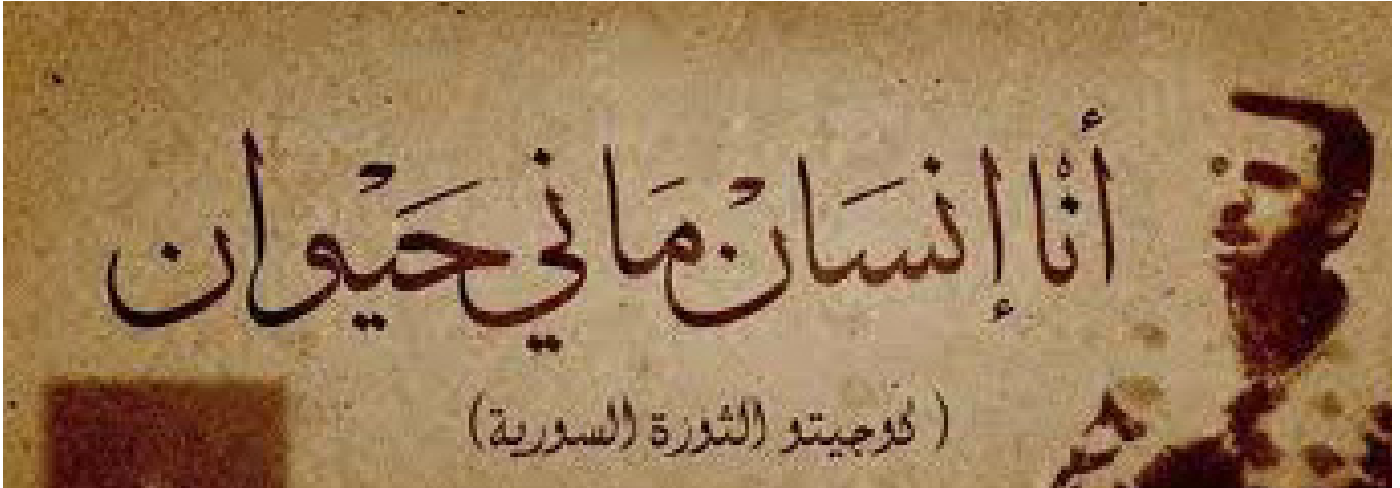 أنا إنسان ماني حَيْوان
(كوجيتو الثورة السورية)